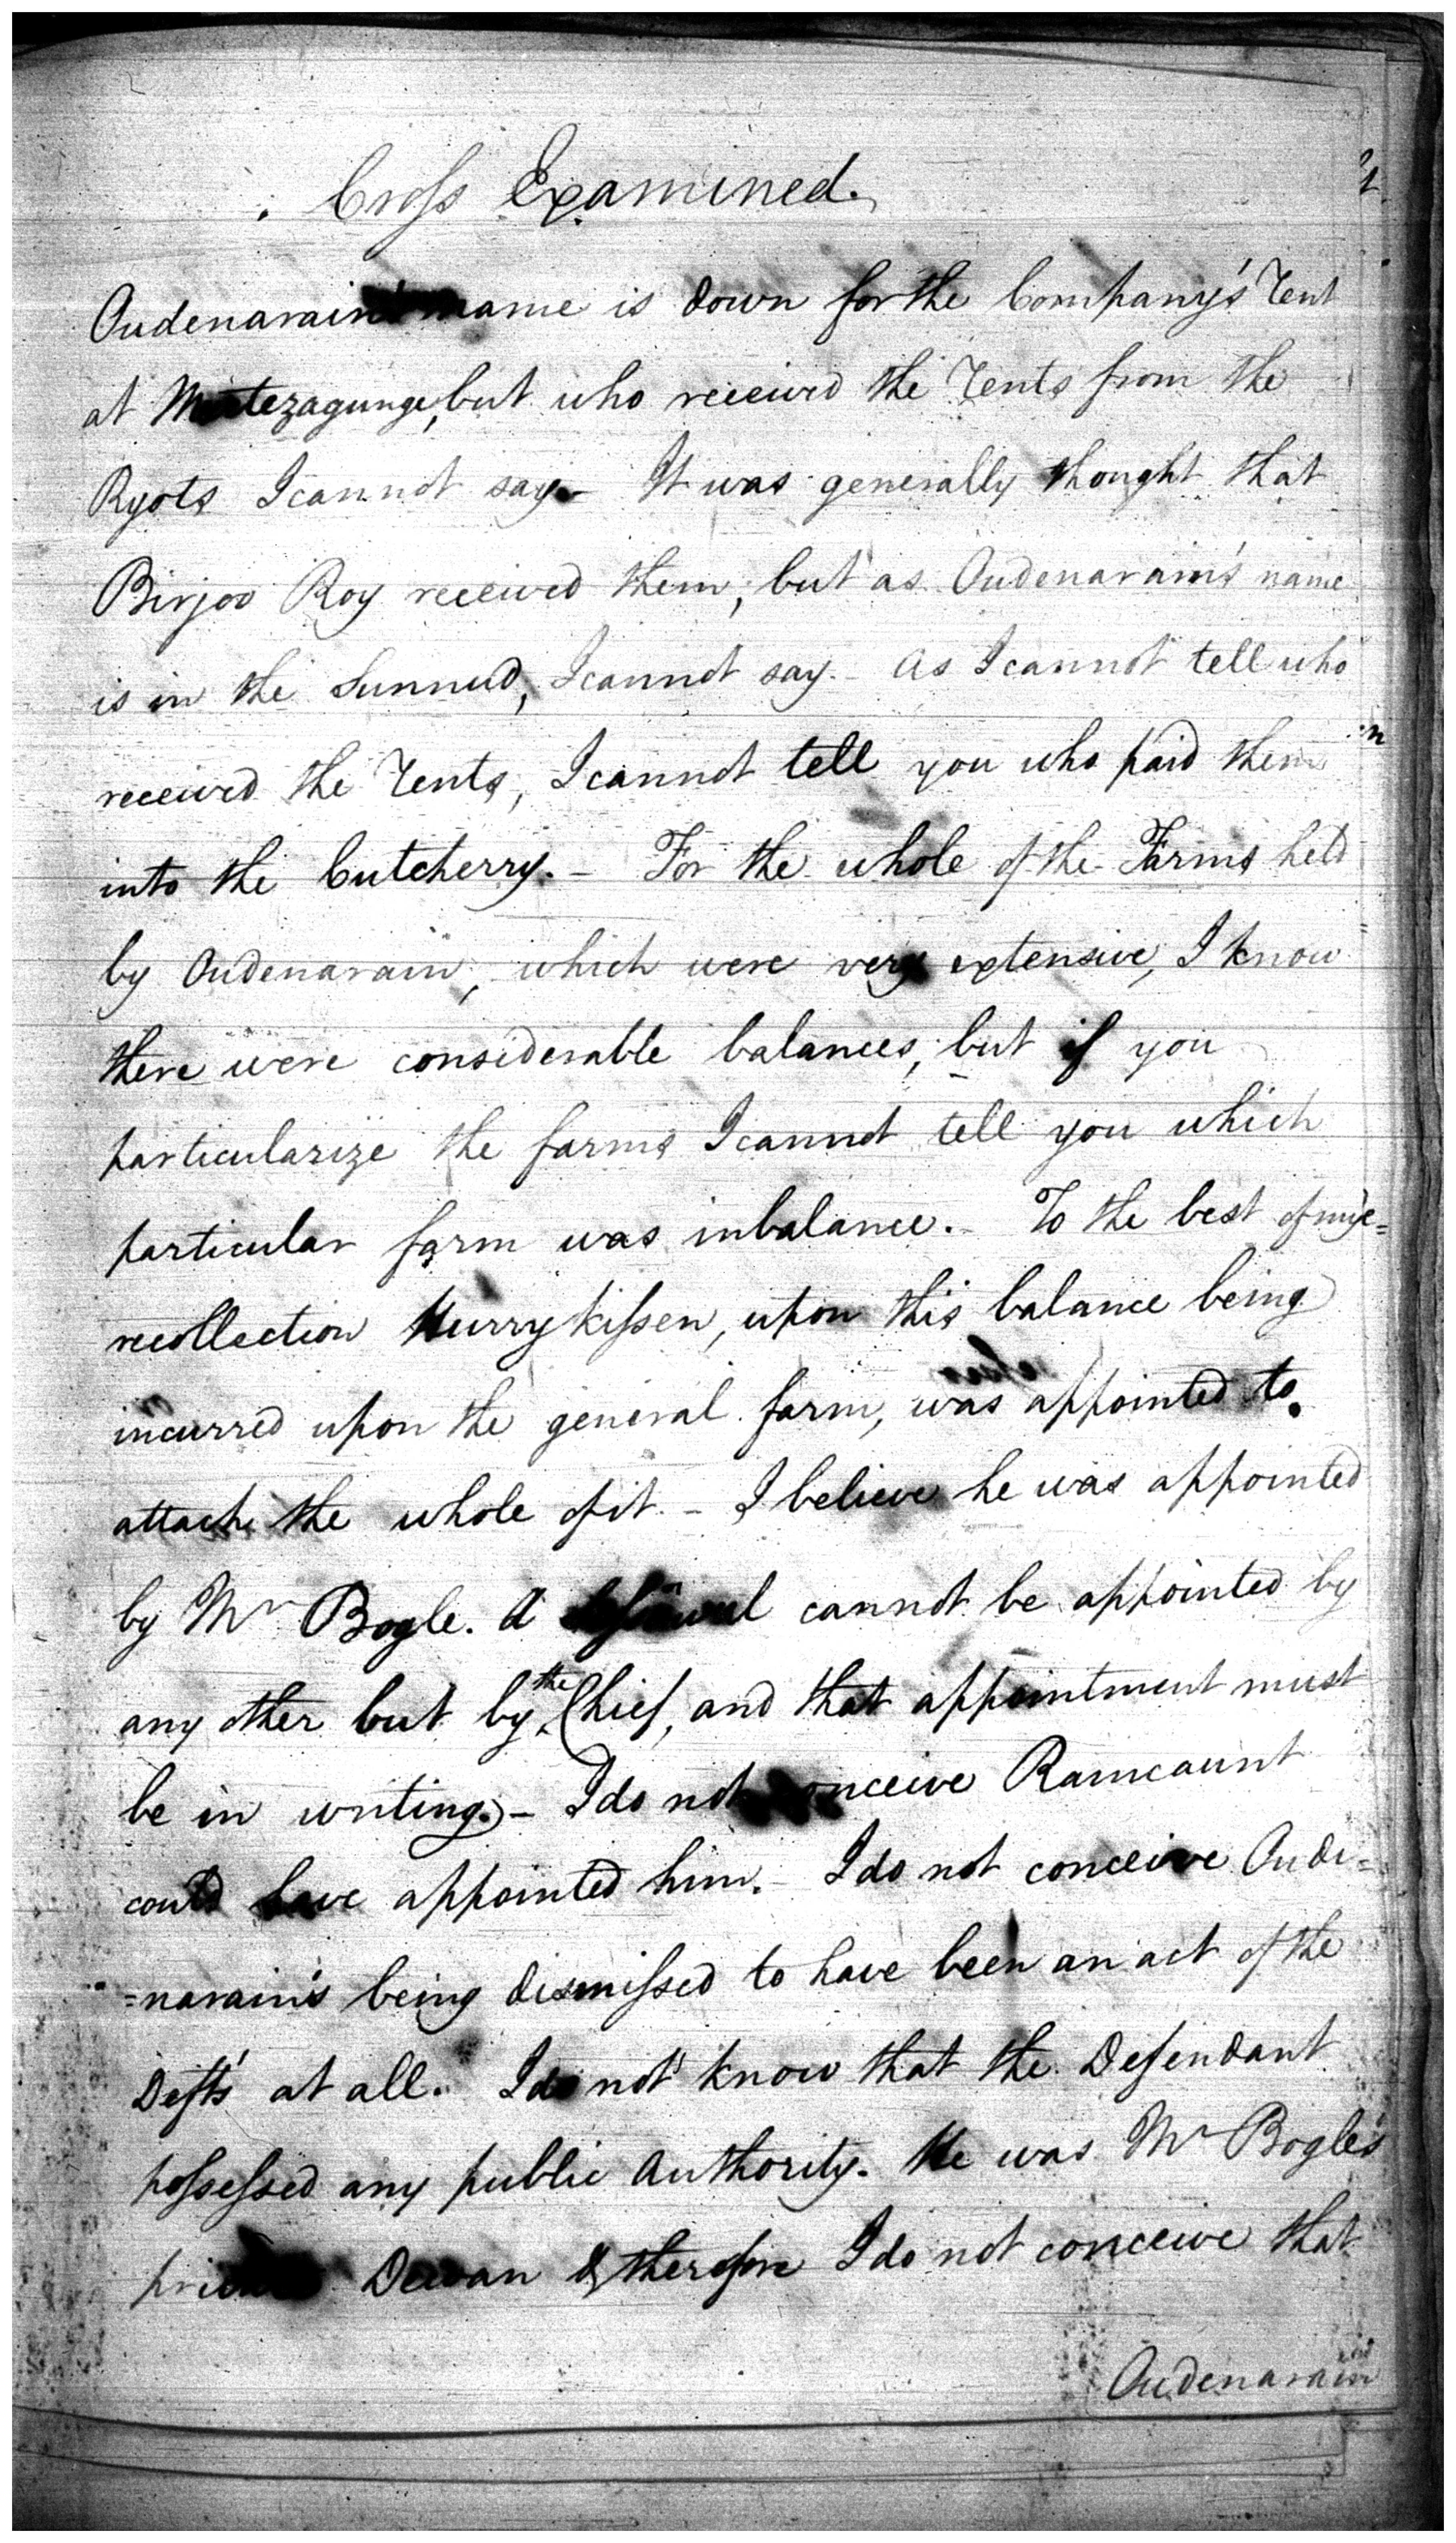 Cross Examined.
Oudenarain's name is down for the Company's Rent
at Mortezagunge, but who received the Rents from the
Ryots I cannot say - It was generally thought that
Birjoo Roy received them; but as Oudenarain's name
is in the Sunnud, I cannot say. - As I cannot tell who
received the Rents, I cannot tell you who paid them
into the Cutcherry. - For the whole of the Farms held
by Oudenarain, which were very extensive, I know
there were considerable balances; but if you
particularize the farms I cannot tell you which
particular farm was in balance. - To the best of my =
recollection Hurrykissen, upon this balance being
incurred upon the general farm, was appointed to
attach the whole of it - I believe he was appointed
by Mr Bogle. A cannot be appointed by
any other but by the Chief, and that appointment must
be in writing. - I do not conceive Ramcaunt
could have appointed him. - I do not conceive Oude=
=narain's being dismissed to have been an act of the
Defts' at all. I do not know that the Defendant
possessed any public Authority. He was Mr Bogle's
private Dewan & therefore I do not conceive that
Oudenarain